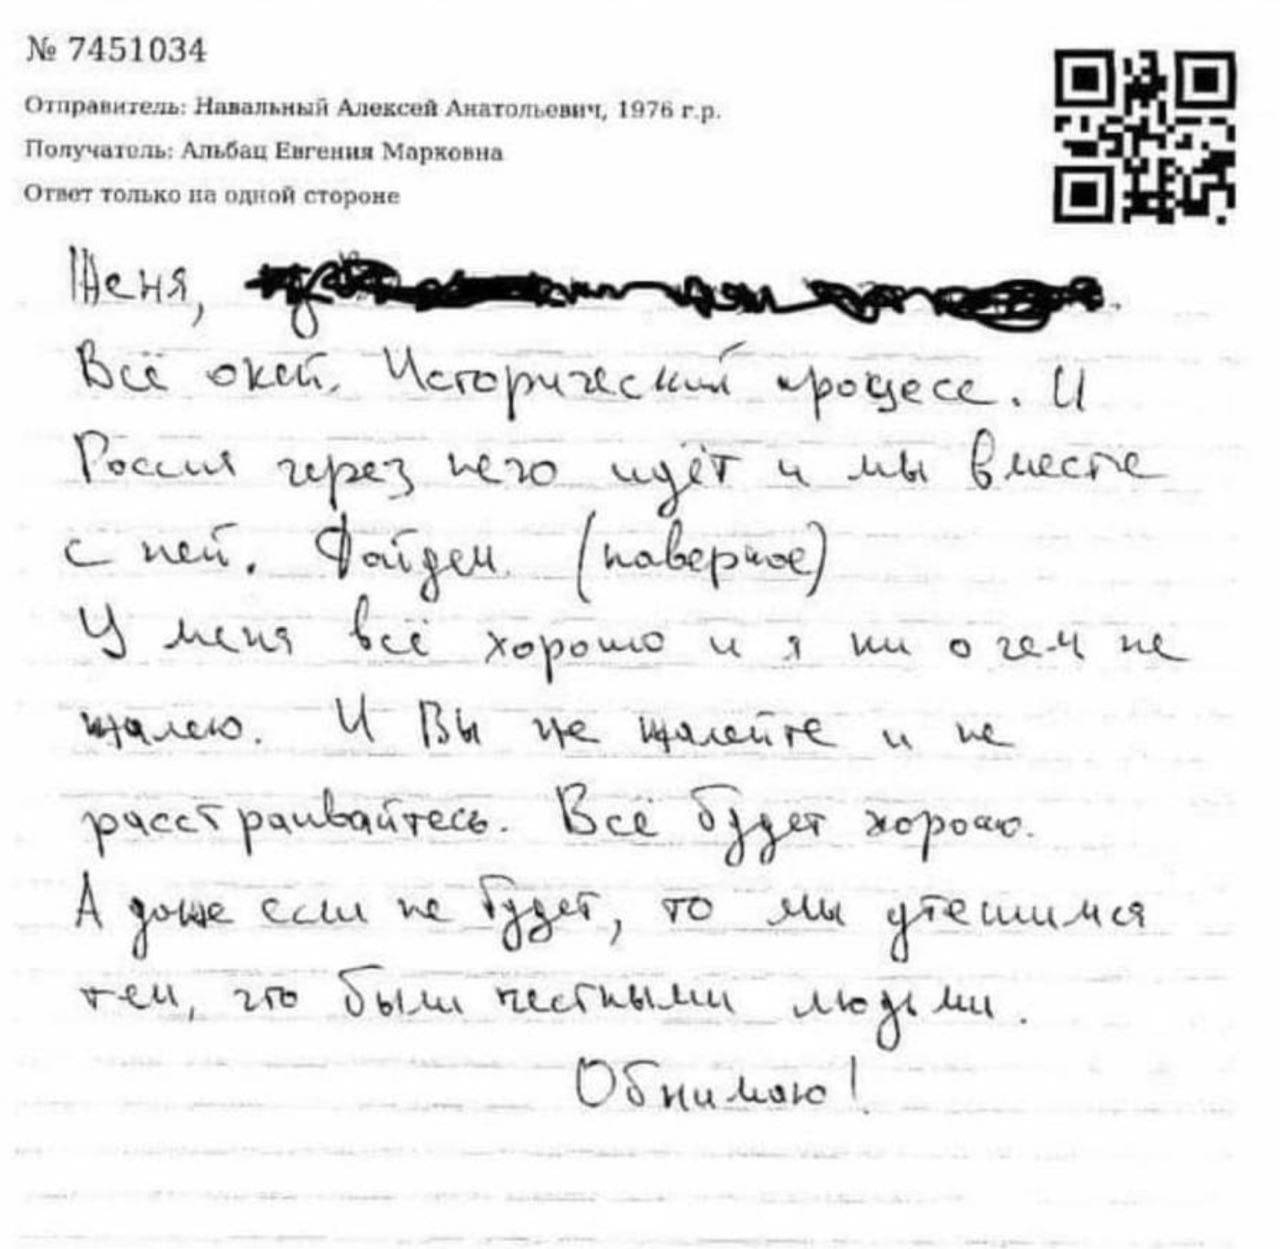 № 7451034
Отправитель: Навальный Алексей Анатольевич, 1976 г.р.
Получатель: Альбац Евгения Марковна
Ответ только на одной стороне
Женя,
Всё окей. Исторический процесс. И
Россия через него идёт и мы вместе
с ней. Дойдем (наверное)
У меня всё хорошо и я ни о чем не
жалею. И Вы не жалейте и не
расстраивайтесь. Всё будет хорошо.
А даже если не будет, то мы утешимся
тем, что были честными людьми.
Обнимаю!